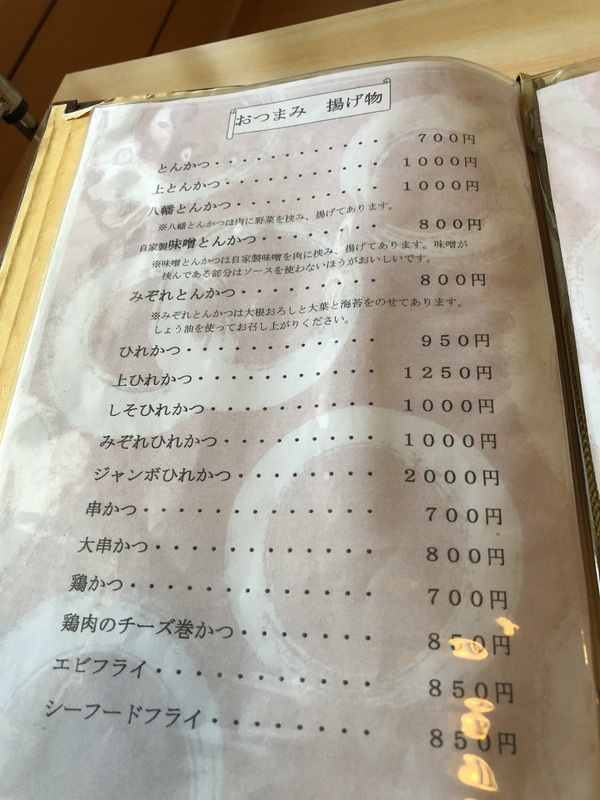 おつまみ 揚げ物
とんかつ・・・・・・・・・・・700円
上とんかつ・・・・・・・・・・1000円
八幡とんかつ・・・・・・・・・1000円
※八幡とんかつは肉に野菜を挟み、揚げてあります。
自家製味噌とんかつ・・・・・・・800円
※味噌とんかつは自家製味噌を肉に挟み、揚げてあります。味噌が
挟んである部分はソースを使わないほうがおいしいです。
みぞれとんかつ・・・・・・・・800円
※みぞれとんかつは大根おろしと大葉と海苔をのせてあります。
しょう油を使ってお召し上がりください。
ひれかつ・・・・・・・・・・・950円
上ひれかつ・・・・・・・・・・1250円
しそひれかつ・・・・・・・・・1000円
みぞれひれかつ・・・・・・・・1000円
ジャンボひれかつ・・・・・・・2000円
串かつ・・・・・・・・・・・・700円
大串かつ・・・・・・・・・・・800円
鶏かつ・・・・・・・・・・・・700円
鶏肉のチーズ巻かつ・・・・・・・850円
エビフライ・・・・・・・・・・・850円
シーフードフライ・・・・・・・・850円